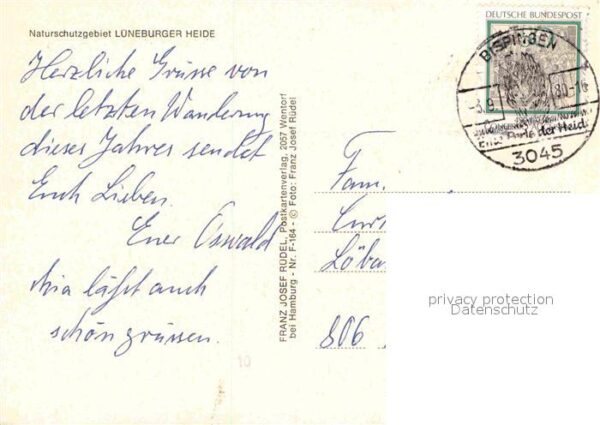 Naturschutzgebiet LÜNEBURGER HEIDE
Herzliche Grüsse von
der letzten Wanderung
dieses Jahres sendet
Euch Lieben
Euer Oswald
läßt auch
schön grüssen.
FRANZ JOSEF RÜDEL, Postkartenverlag, 2057 Wentorf
bei Hamburg - Nr. F-164 - © Foto: Franz Josef Rüdel
10
DEUTSCHE BUNDESPOST
BISPINGEN
-3.9
80-16
Perle der Heide
3045
Fam.
Löba
806
privacy protection
Datenschutz